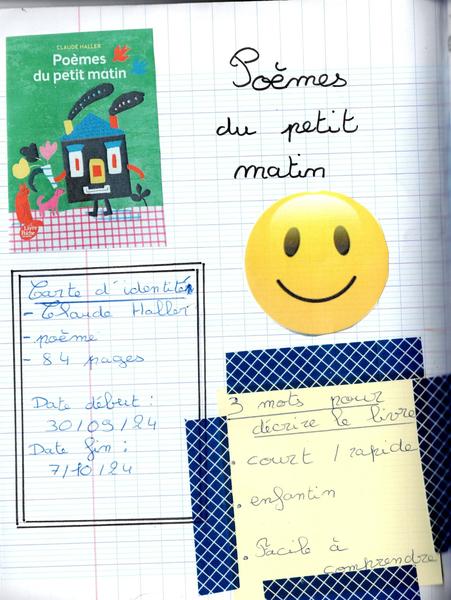 CLAUDE HALLER
Poèmes
du petit matin
Livre
Poche
Poèmes
du petit
matin
Carte d'identité
- Claude Haller
- poème
- 84 pages
Date début :
30/09/24
Date fin :
7/10/24
3 mots pour
décrire le livre
• court / rapide
• enfantin
• Facile à
comprendre